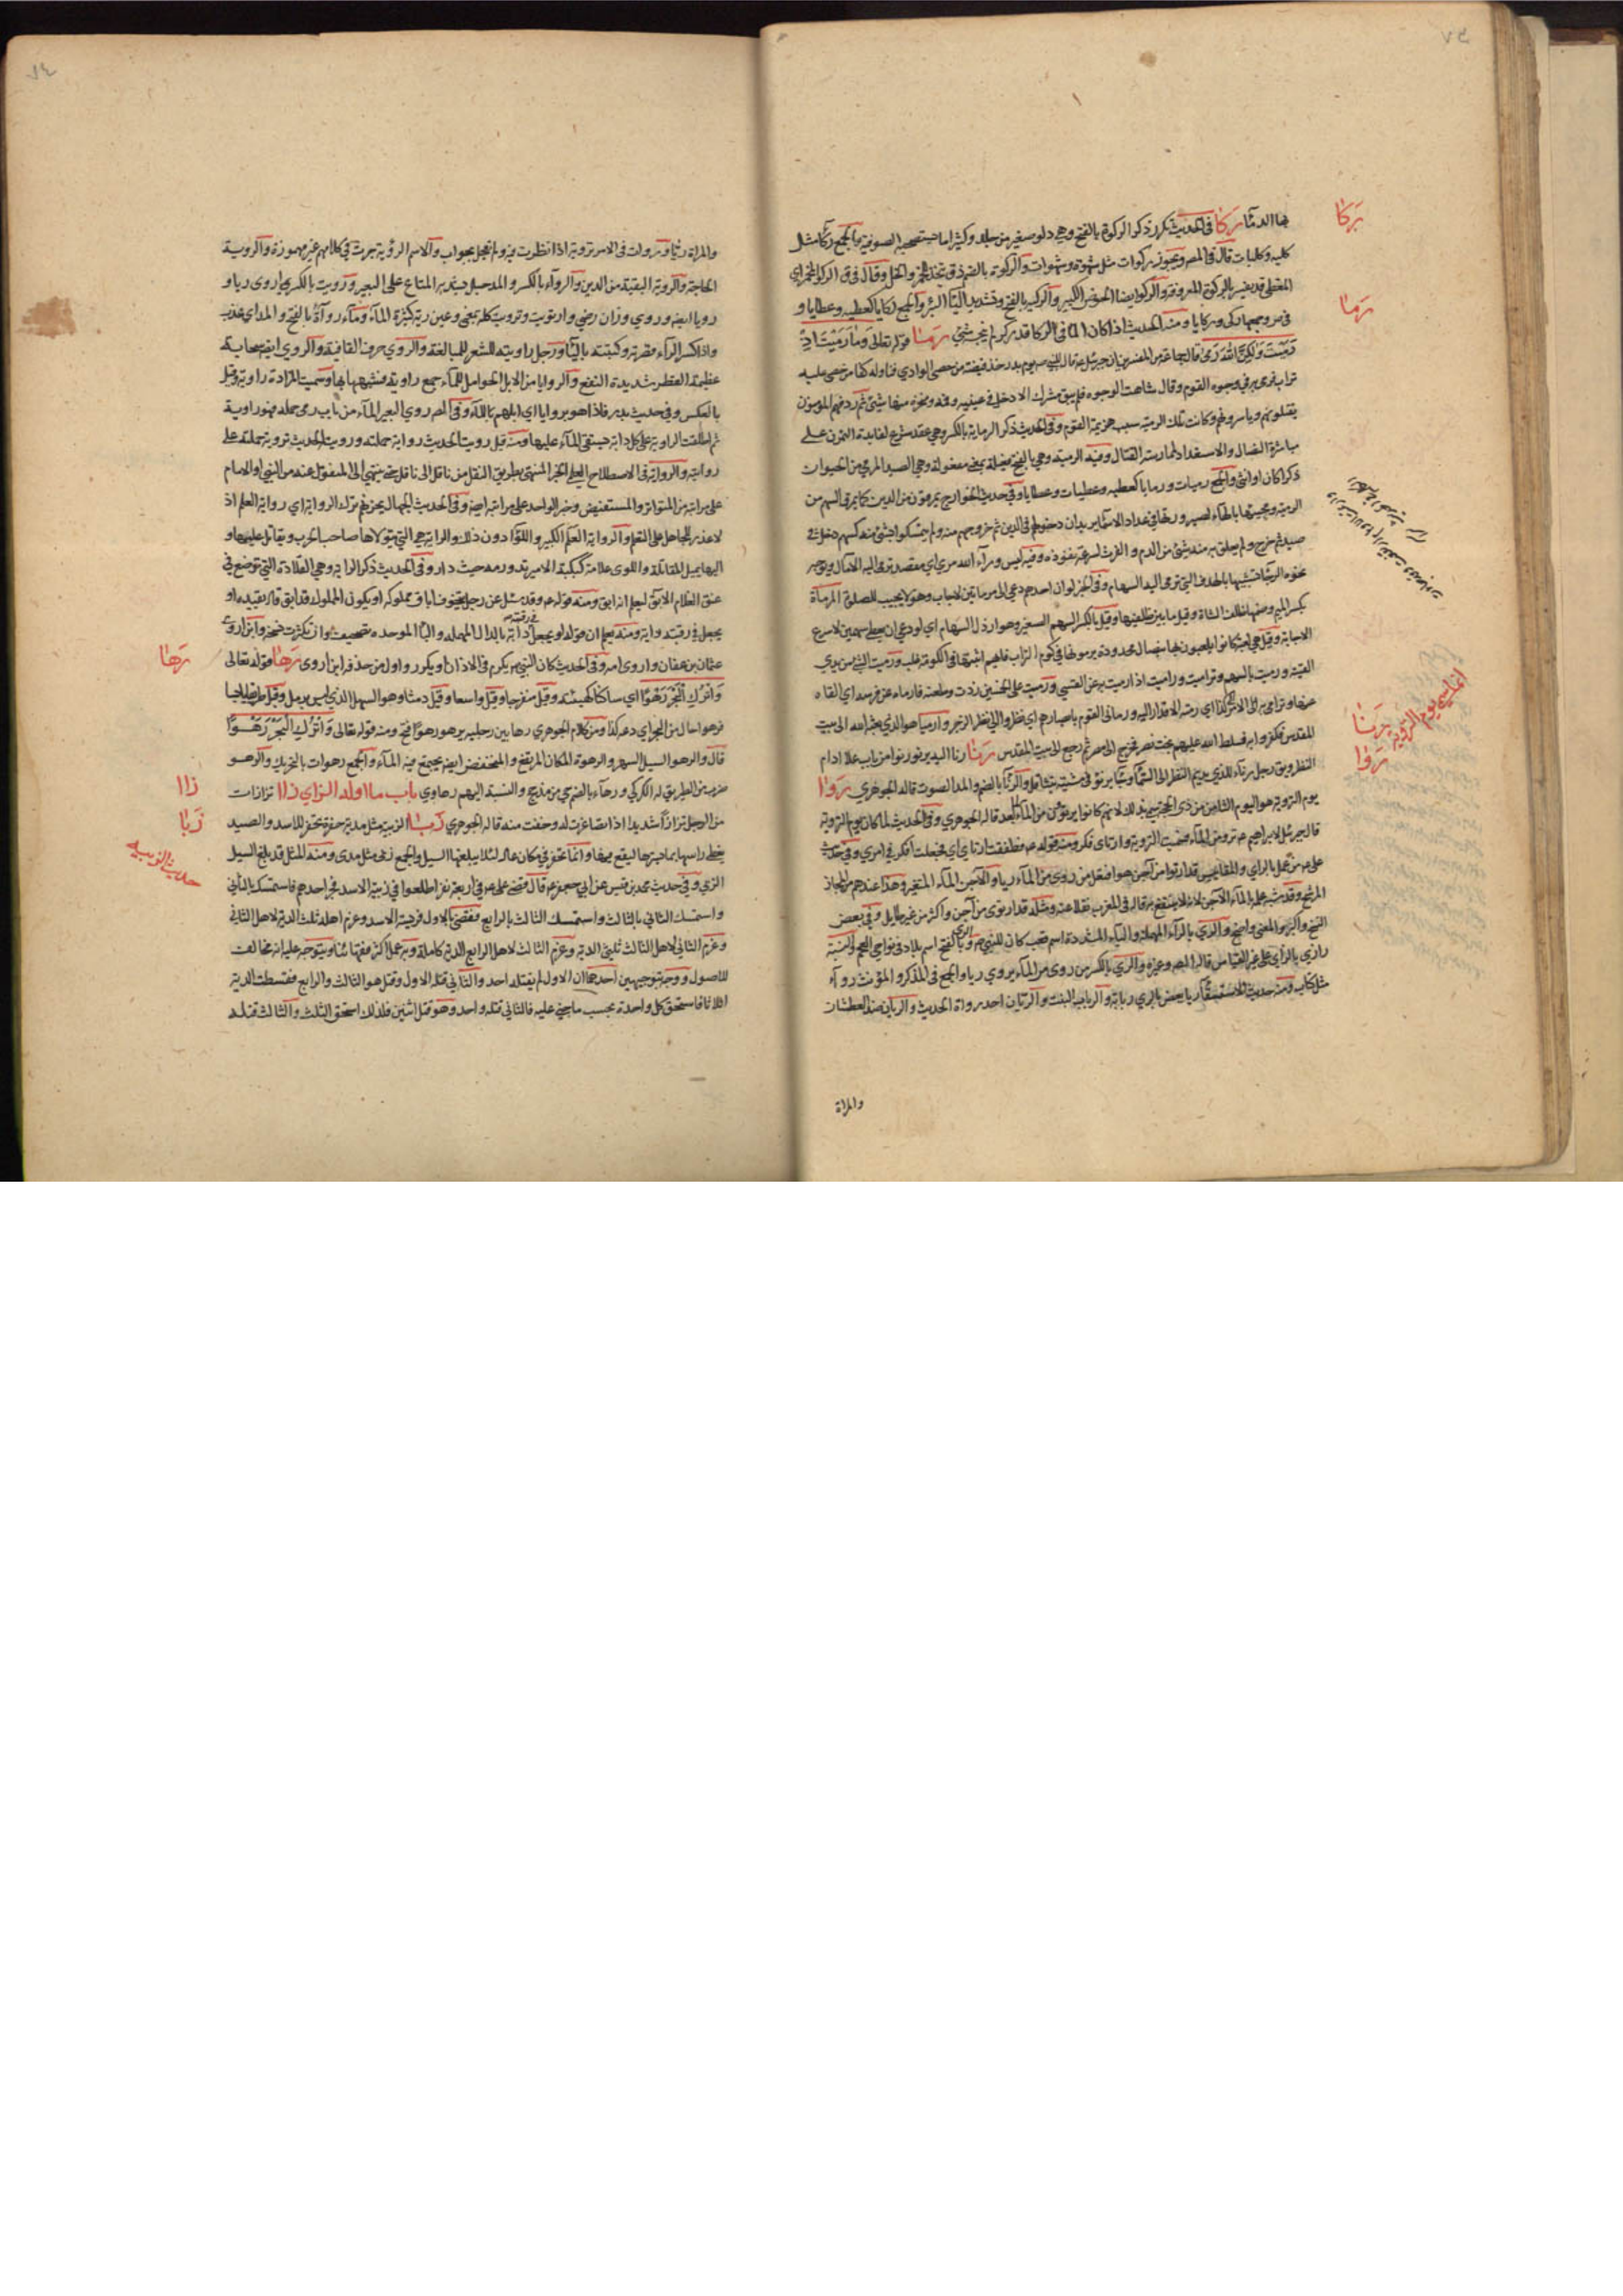 بها الدماء ركا في الحديث تكرر ذكر الركوة بالفتح وهي دلو صغير من جلد وكثيرا ما يستصحبه الصوفية والجمع ركاء مثل
كلبة وكلبات قال في المص ويجوز ركوات مثل شهوة وشهوات والركوة بالضم زق يتخذ للخمر والخل وقال في ق الركو
المغطى قد يفسر بالركوة المعروفة والركو ايضا الحوض الكبير والركية بالفتح وتشديد الياء البئر والجمع ركايا كعطية وعطايا و
ومنه الحديث اذا كان الماء في الركا قدر كر لم ينجسه شئ رما قوله تعالى وما رميت اذ
رميت ولكن الله رمى قال جماعة من المفسرين ان جبرئيل ع قال للنبي ص يوم بدر خذ قبضة من حصى الوادي فناوله كفا من حصى عليه
تراب فرمى به في وجوه القوم وقال شاهت الوجوه فلم يبق مشرك الا دخل في عينيه وفمه ومنخره منها شئ ثم ردفهم المؤمنون
يقتلونهم وياسرونهم وكانت تلك الرمية سبب هزيمة القوم وفي الحديث ذكر الرماية بالكسر وهي عقد شرع لفايدة التمرن على
مباشرة النضال والاستعداد لممارسة القتال وفيه الرمية وهي بالفتح فعيلة بمعنى مفعولة وهي الصيد المرمي من الحيوان
ذكرا كان او انثى والجمع رميات ورمايا كعطية وعطيات وعطايا وفي حديث الخوارج يمرقون من الدين كما يمرق السهم من
الرمية
صيد ثم خرج ولم يعلق به منه شئ من الدم و الفرث لسرعة نفوذه وفيه ليس وراء الله مرمى اي مقصد ترمى اليه الامال ويوجه
نحوه الرجاء تشبيها بالهدف التي ترمى اليه السهام وفي الخبر لو ان احدهم دعي الى مرماتين لاجاب وهو لا يجيب للصلوة المرماة
بكسر الميم وفتحها ظلف الشاة وقيل ما بين ظلفيها وقيل بالكسر السهم الصغير وهو ارذل السهام اي لو دعي ان يعطى سهمين لاسرع
الاجابة وقيل هي لعبة كانوا يلعبون بها بنصال محدودة يرمونها في كوم التراب فايهم اثبتها في الكومة غلب ورميت الشئ من يدي
القيته ورميت بالسهم وتراميت وراميت اذا رميت به عن القسي ورميت على الخمسين زدت وطعنه فارماه عن فرسه اي القاه
المقدس فكفروا به فسلط الله عليهم بخت نصر فخرج الى مصر ثم رجع الى بيت المقدس رنا رنا اليه يرنو رنوا من باب علا ادام
النظر ويق رجل رناء للذي يديم النظر الى النساء والرناء بالضم والمد الصوت قاله الجوهري روا
يوم التروية هو اليوم الثامن من ذي الحجة سمي بذلك لانهم كانوا يرتوون من الماء لما بعد قاله الجوهري وفي الحديث لما كان يوم التروية
قال جبرئيل لابراهيم ع ترو من الماء فسميت التروية وارتاى فكر ومنه قوله ع وطفقت ارتاي اي فجعلت افكر في امري وفي حديث
على ع من عمل بالراي والمقاييس قد ارتوى من آجن هو افتعل من روى من الماء ريا والآجن الماء المتغير وهذا عندهم من المجاز
المرشح وقد شبه علمه بالماء الآجن لانه لا ينتفع به قال في المغرب نقلا عنه ومثله قد ارتوى من آجن واكثر من غير طايل وفي بعض
النسخ والمعنى واضح والري بالراء المهملة والياء المشددة اسم قصب كان للنبي ص وبالفتح اسم بلاد في نواحي العجم والنسبة
رازي بالزاي على غير القياس قاله المص وغيره والري بالكسر من روى من الماء يروي ريا والجمع في المذكر والمؤنث رواء
مثل كتاب ومنه حديث الاستسقاء والريان ضد العطشان
والمراة
ركا
رما
رنا
روا
والمراة ريا وروات في الامر تروية اذا نظرت فيه ولم تعجل بجواب والاسم الروية جرت في كلامهم غير مهموزة والروية
الحاجة والروية البقية من الدين والرواء بالكسر والمد حبل يشد به المتاع على البعير ورويت بالكسر اروى ريا و
رويا ايضا وروي وزان رضي وارتويت وترويت كله بمعنى وعين رية كثيرة الماء وماء رواء بالفتح والمد اي عذب
واذا كسر الراء قصرته وكتبته بالياء ورجل راوية للشعر للمبالغة والروي حرف القافية والروي ايضا سحابة
عظيمة القطر شديدة النفح والروايا من الابل الحوامل للماء جمع راوية فشبهها بها وسميت المزادة راوية وقيل
بالعكس وفي حديث بدر فاذا هو بروايا اي ابلهم بالماء وفي المص روى البعير الماء من باب رمى حمله فهو راوية
ثم اطلقت الراوية على كل دابة يستقى الماء عليها ومنه قيل رويت الحديث رواية حملته ورويت الحديث تروية حملته على
روايته والرواية في الاصطلاح العلمي الخبر المنتهي بطريق النقل من ناقل الى ناقل حتى ينتهي الى المنقول عنه من النبي او الامام
على مراتبه من المتواتر والمستفيض وخبر الواحد على مراتبه ايضا وفي الحديث الجهال يحزنهم ترك الرواية اي رواية العلم اذ
لا عذر للجاهل على التعلم والراية العلم الكبير واللواء دون ذلك والراية هي التي يتولاها صاحب الحرب ويقاتل عليها و
اليها يميل المقاتلة واللوى علامة كبكبة الامير تدور معه حيث دار وفي الحديث ذكر الراية وهي القلادة التي توضع في
عنق الغلام الآبق ليعلم انه ابق ومنه قوله ع وقد سئل عن رجل يتخوف اباق مملوكه او يكون المملوك قد ابق قال يقيده او
يجعل في رقبته راية ومنه يعلم ان قوله او يجعل في رقبته دابة بالدال المهملة والباء الموحدة تصحيف وان تكثرت نسخه وابن اروى
عثمان بن عفان واروى امه وفي الحديث كان النبي ص يكرم في الاذان او يكور واول من حذفه ابن اروى رها قوله تعالى
واترك البحر رهوا اي ساكنا كهيئته وقيل منفرجا وقيل واسعا وقيل دمثا وهو السهل الذي ليس برمل وقيل طريقا يابسا
فرهوا حال من البحر اي دعه كذا ومن كلام الجوهري رها بين رجليه يرهو رهوا فتح ومنه قوله تعالى واترك البحر رهوا
قال والرهو السيل السهل والرهوة المكان المرتفع والمنخفض ايضا يجتمع فيه الماء والجمع رهوات بالتحريك والرهو
ضرب من الطير يق له الكركي ورهاء بالضم حي من مذحج والنسبة اليهم رهاوي باب ما اوله الزاي زاا تزازات
من الرجل تزازا شديدا اذا تصاغرت له وخفت منه قاله الجوهري زبا الزبية مثل مدية حفرة تحفر للاسد والصيد
يغطى راسها بما يسترها ليقع فيها وانما تحفر في مكان عال لئلا يبلغها السيل والجمع زبى مثل مدى ومنه المثل قد بلغ السيل
الزبى وفي حديث محمد بن قيس عن ابي جعفر ع قال قضى على ع في اربعة نفر اطلعوا في زبية الاسد فخر احدهم فاستمسك بالثاني
واستمسك الثاني بالثالث واستمسك الثالث بالرابع فقضى بالاول فريسة الاسد وغرم اهله ثلث الدية لاهل الثاني
وغرم الثاني لاهل الثالث ثلثي الدية وغرم الثالث لاهل الرابع الدية كاملة وبه عمل اكثر فقهائنا ويتوجه عليه انه مخالف
للاصول ووجه بتوجيهين احدهما ان الاول لم يقتله احد والثاني قتله الاول وقتل هو الثالث والرابع فقسطت الدية
اثلاثا فاستحق كل واحدة بحسب ما جنى عليه فالثاني قتله واحد وهو قتل اثنين فلذلك استحق الثلث والثالث قتله
رها
زاا
زبا
حديث الزبية